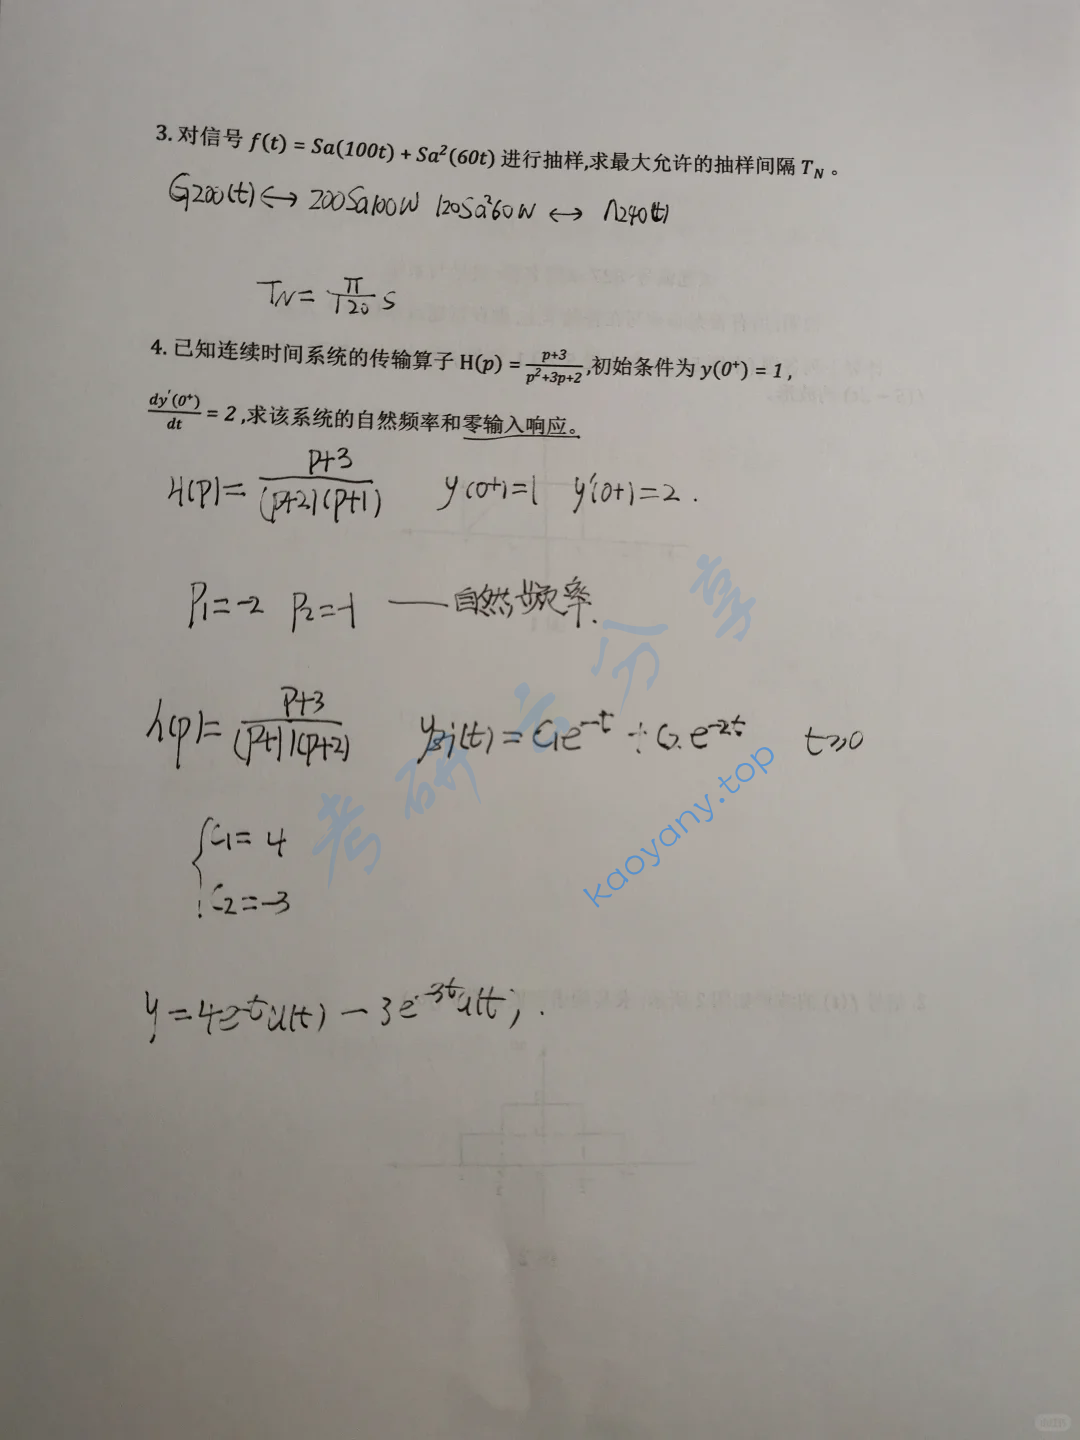 3. 对信号 f(t) = Sa(100t) + Sa²(60t) 进行抽样,求最大允许的抽样间隔 T_N 。
G200(t) ↔ 200Sa100W 120Sa²60W ↔ Λ240(t)
T_N = π/120 S
4. 已知连续时间系统的传输算子 H(p) = (p+3)/(p²+3p+2) ,初始条件为 y(0⁺) = 1 ,
dy′(0⁺)/dt = 2 ,求该系统的自然频率和零输入响应。
H(p) = (p+3)/((p+2)(p+1)) y(0+)=1 y′(0+)=2 .
P₁=-2 P₂=-1 —— 自然频率.
h(p) = (p+3)/((p+1)(p+2)) yzi(t) = C₁e^(-t) + C₂e^(-2t) t≥0
{ C₁= 4
C₂=-3
y = 4e^(-t)u(t) - 3e^(-3t)u(t) ; .
考研云分享
kaoyany.top